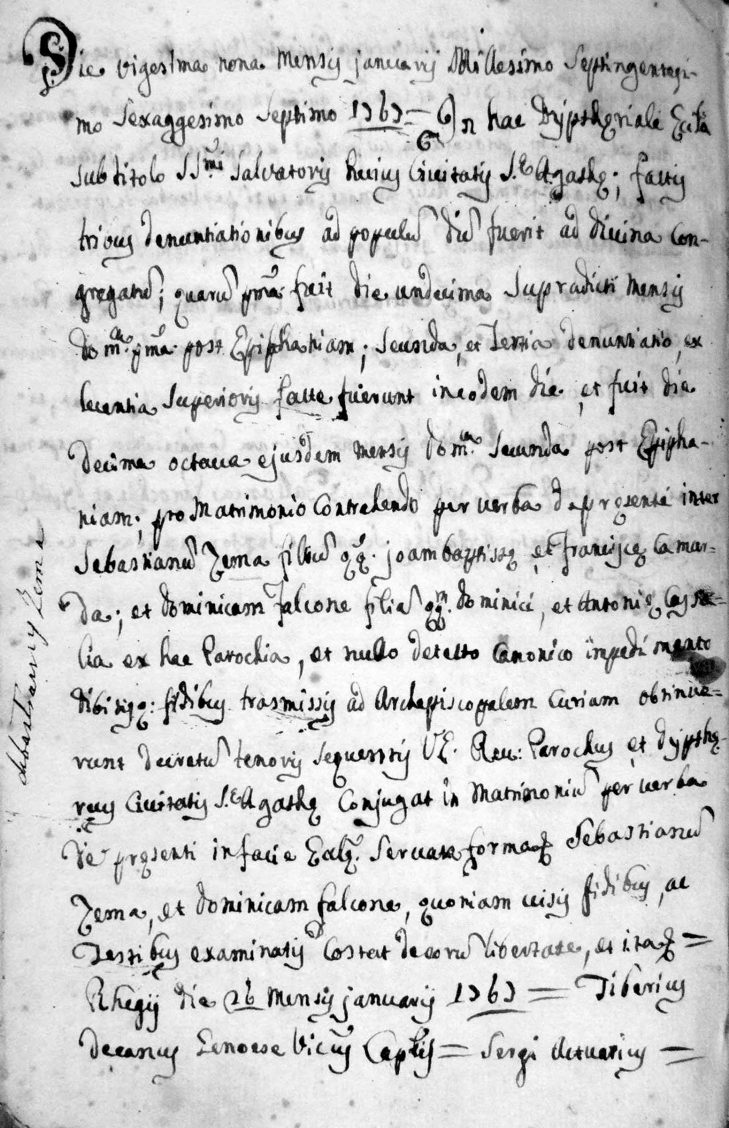 Die vigesima nona Mensis januarij Millesimo Septingentegi-
mo Sexaggesimo Septimo 1767 = In hac Dypthęriale Eccla
sub titolo SSmi Salvatoris huius Civitatis S.E Agathę; factis
tribus denuntiationibus ad populū dū fuerit ad divina con-
gregatū; quarū pma fuit die undecima Supradicti Mensis
domca pma post Epiphaniam; Secunda, et Tertia denuntiatio, ex
licentia Superioris factę fuerunt in eodem die, et fuit die
decima octava ejusdem Mensis domca Secunda post Epipha-
niam; pro Matrimonio Contrahendo per verba de pręsenti inter
Sebastianū Zema filiū qq. joambaptistę, et franciscę Camar-
da; et dominicam falcone filia qqm dominici, et Antonię
lia ex hac Parochia, et nullo detecto Canonico impedimento
fidibus trasmissis ad Archepiscopalem Curiam obtinue-
runt decretū tenoris sequentis VZ. Reu: Parochus et dypthę-
reus Civitatis S.E Agathę Conjugat in Matrimoniū per verba
de pręsenti in facie Ecclę. Servata forma Sebastianū
Zema, et dominicam falcone, quoniam visis fidibus, ac
Testibus examinatis costat de eorū libertate, et ita =
Rhegij die 26 Mensis januarij 1767 = Tiberius
decanus Genoese Vicus Caplis = Sergi Actuarius =
Sebastianus Zema